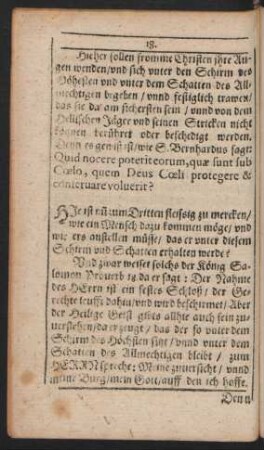 18.
Hieher sollen fromme Christen jhre Au-
gen wenden/vnd sich vnter den Schirm des
Höhesten vnd vnter dem Schatten des All-
mechtigen begeben / vnnd festiglich trawen/
das sie da am sichersten sein / vnnd von dem
Hellischen Jäger vnd seinen Stricken nicht
können berühret oder beschedigt werden.
Denn es gewiß ist/wie S. Bernhardus sagt:
Quid nocere poterit eorum, quæ sunt sub
Cœlo, quem Deus Cœli protegere &
conservare voluerit?
HIe ist nũ zum Dritten fleissig zu mercken/
wie ein Mensch dazu kommen möge/ vnd
wie ers anstellen müsse/ das er vnter diesem
Schirm vnd Schatten erhalten werde?
Vnd zwar weiset solchs der König Sa-
lomon Proverb 18 da er sagt: Der Nahme
des HErrn ist ein festes Schloß/ der Ge-
rechte leufft dahin/vnd wird beschirmet/ Aber
der Heilige Geist gibts allhie auch fein zu-
uerstehen/da er zeugt/ das der so vnter dem
Schirm des Höchsten sitzt /vnnd vnter dem
Schatten des Allmechtigen bleibt / zum
HERRN spreche: Meine zuuersicht/ vnnd
meine Burg/mein Gott/auff den ich hoffe.
Denn